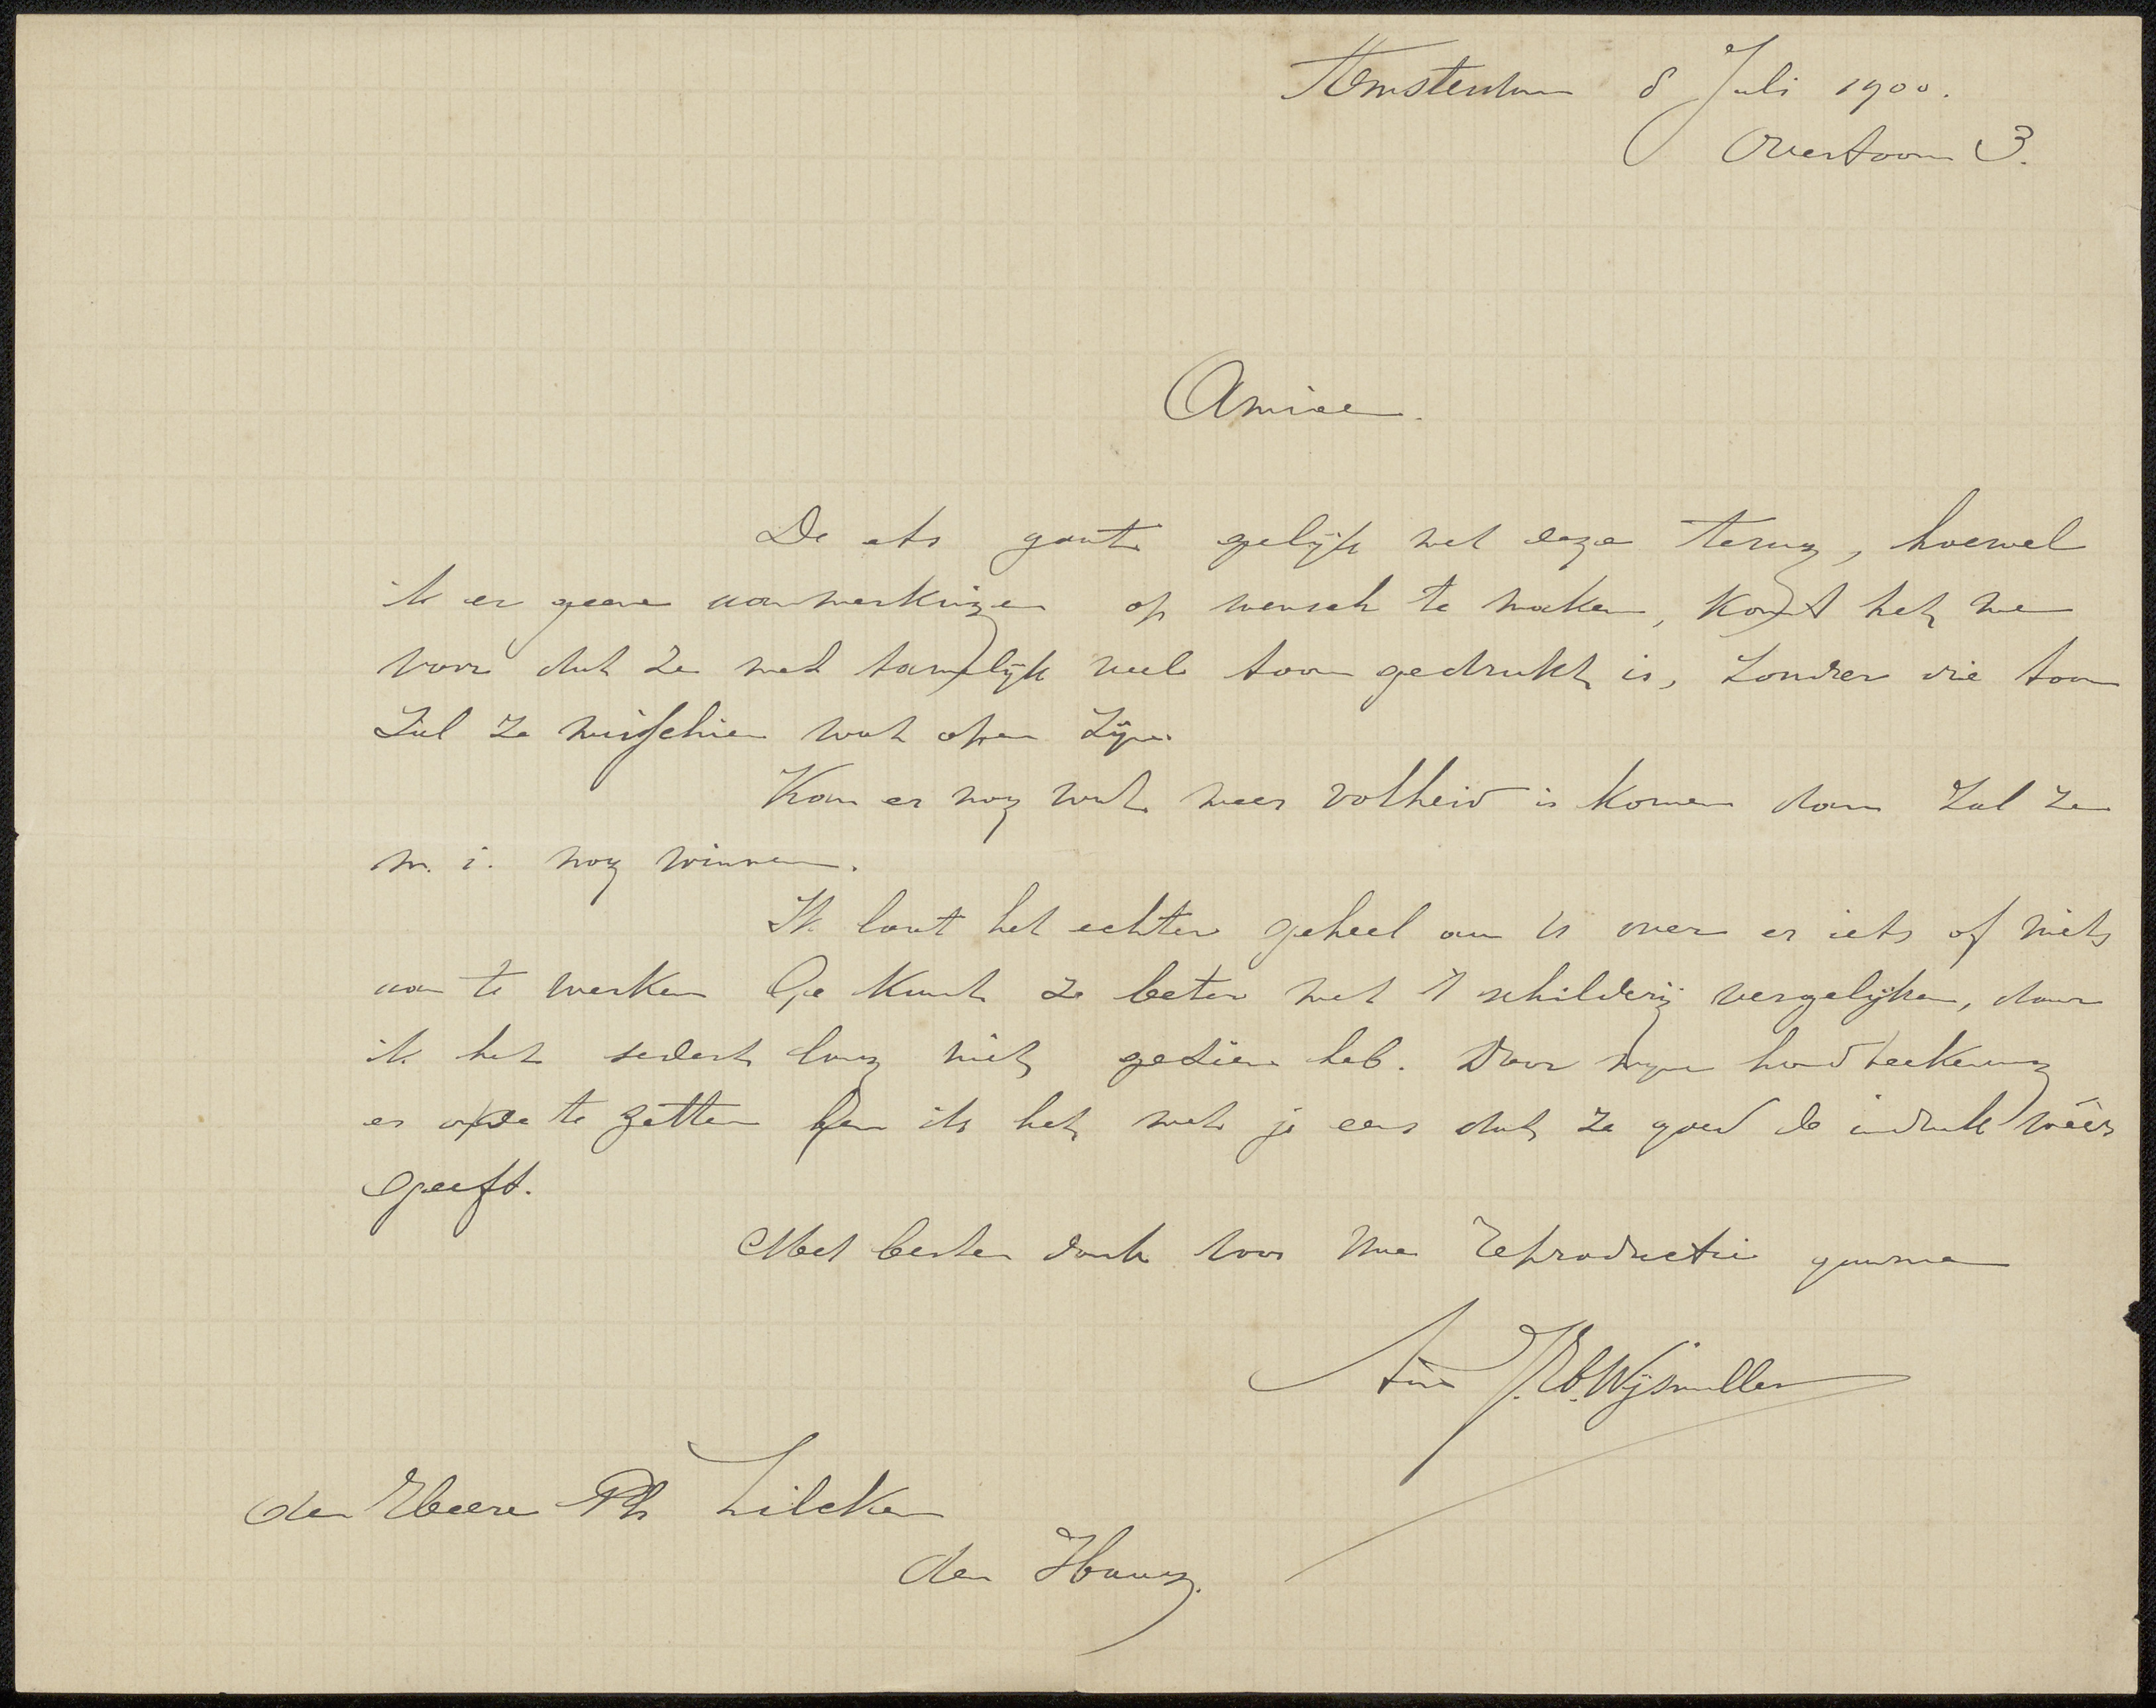 Amsterdam 8 Juli 1900.
Overtoom 3.
Amice
De ets gaat gelijk met deze terug, hoewel
ik er geene aanmerkingen op wensch te maken, komt het me
voor dat ze met tamelijk veel toon gedrukt is, zonder die toon
zal ze misschien wat open zijn.
Kan er nog wat meer volheid in komen dan zal ze
m. i. nog winnen.
Ik laat het echter geheel aan U over er iets of niets
aan te werken Ge kunt ze beter met 't schilderij vergelijken, daar
ik het sedert lang niet gezien heb. Door mijne handteekening
er onder te zetten ben ik het met je eens dat ze goed de indruk wéér
geeft.
Met besten dank voor uwe reproductie gaarne
tuus J. H. Wijsmuller
den Heere Ph Zilcken
den Haag.